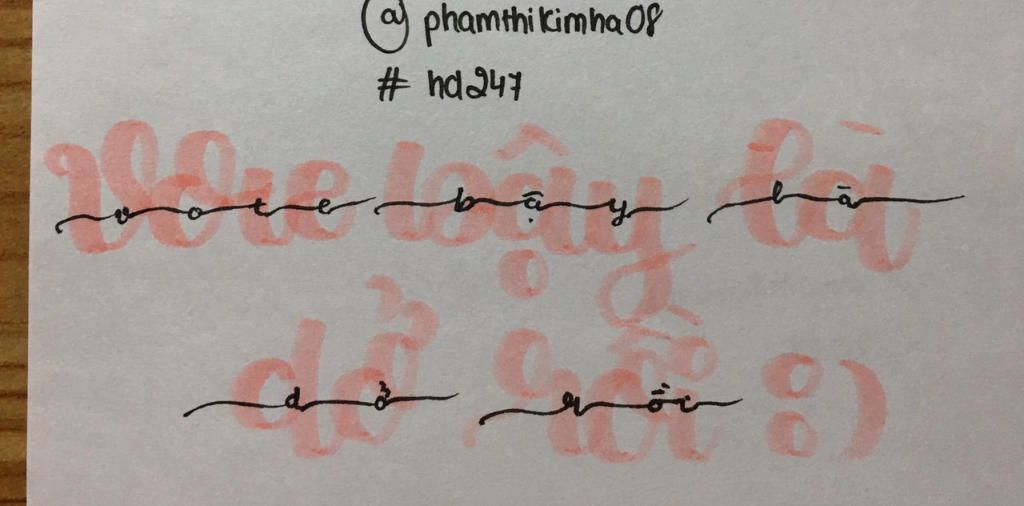 @ phamthikimha08
# hd247
Vote bậy là
vote bậy là
dở rồi :)
dở rồi